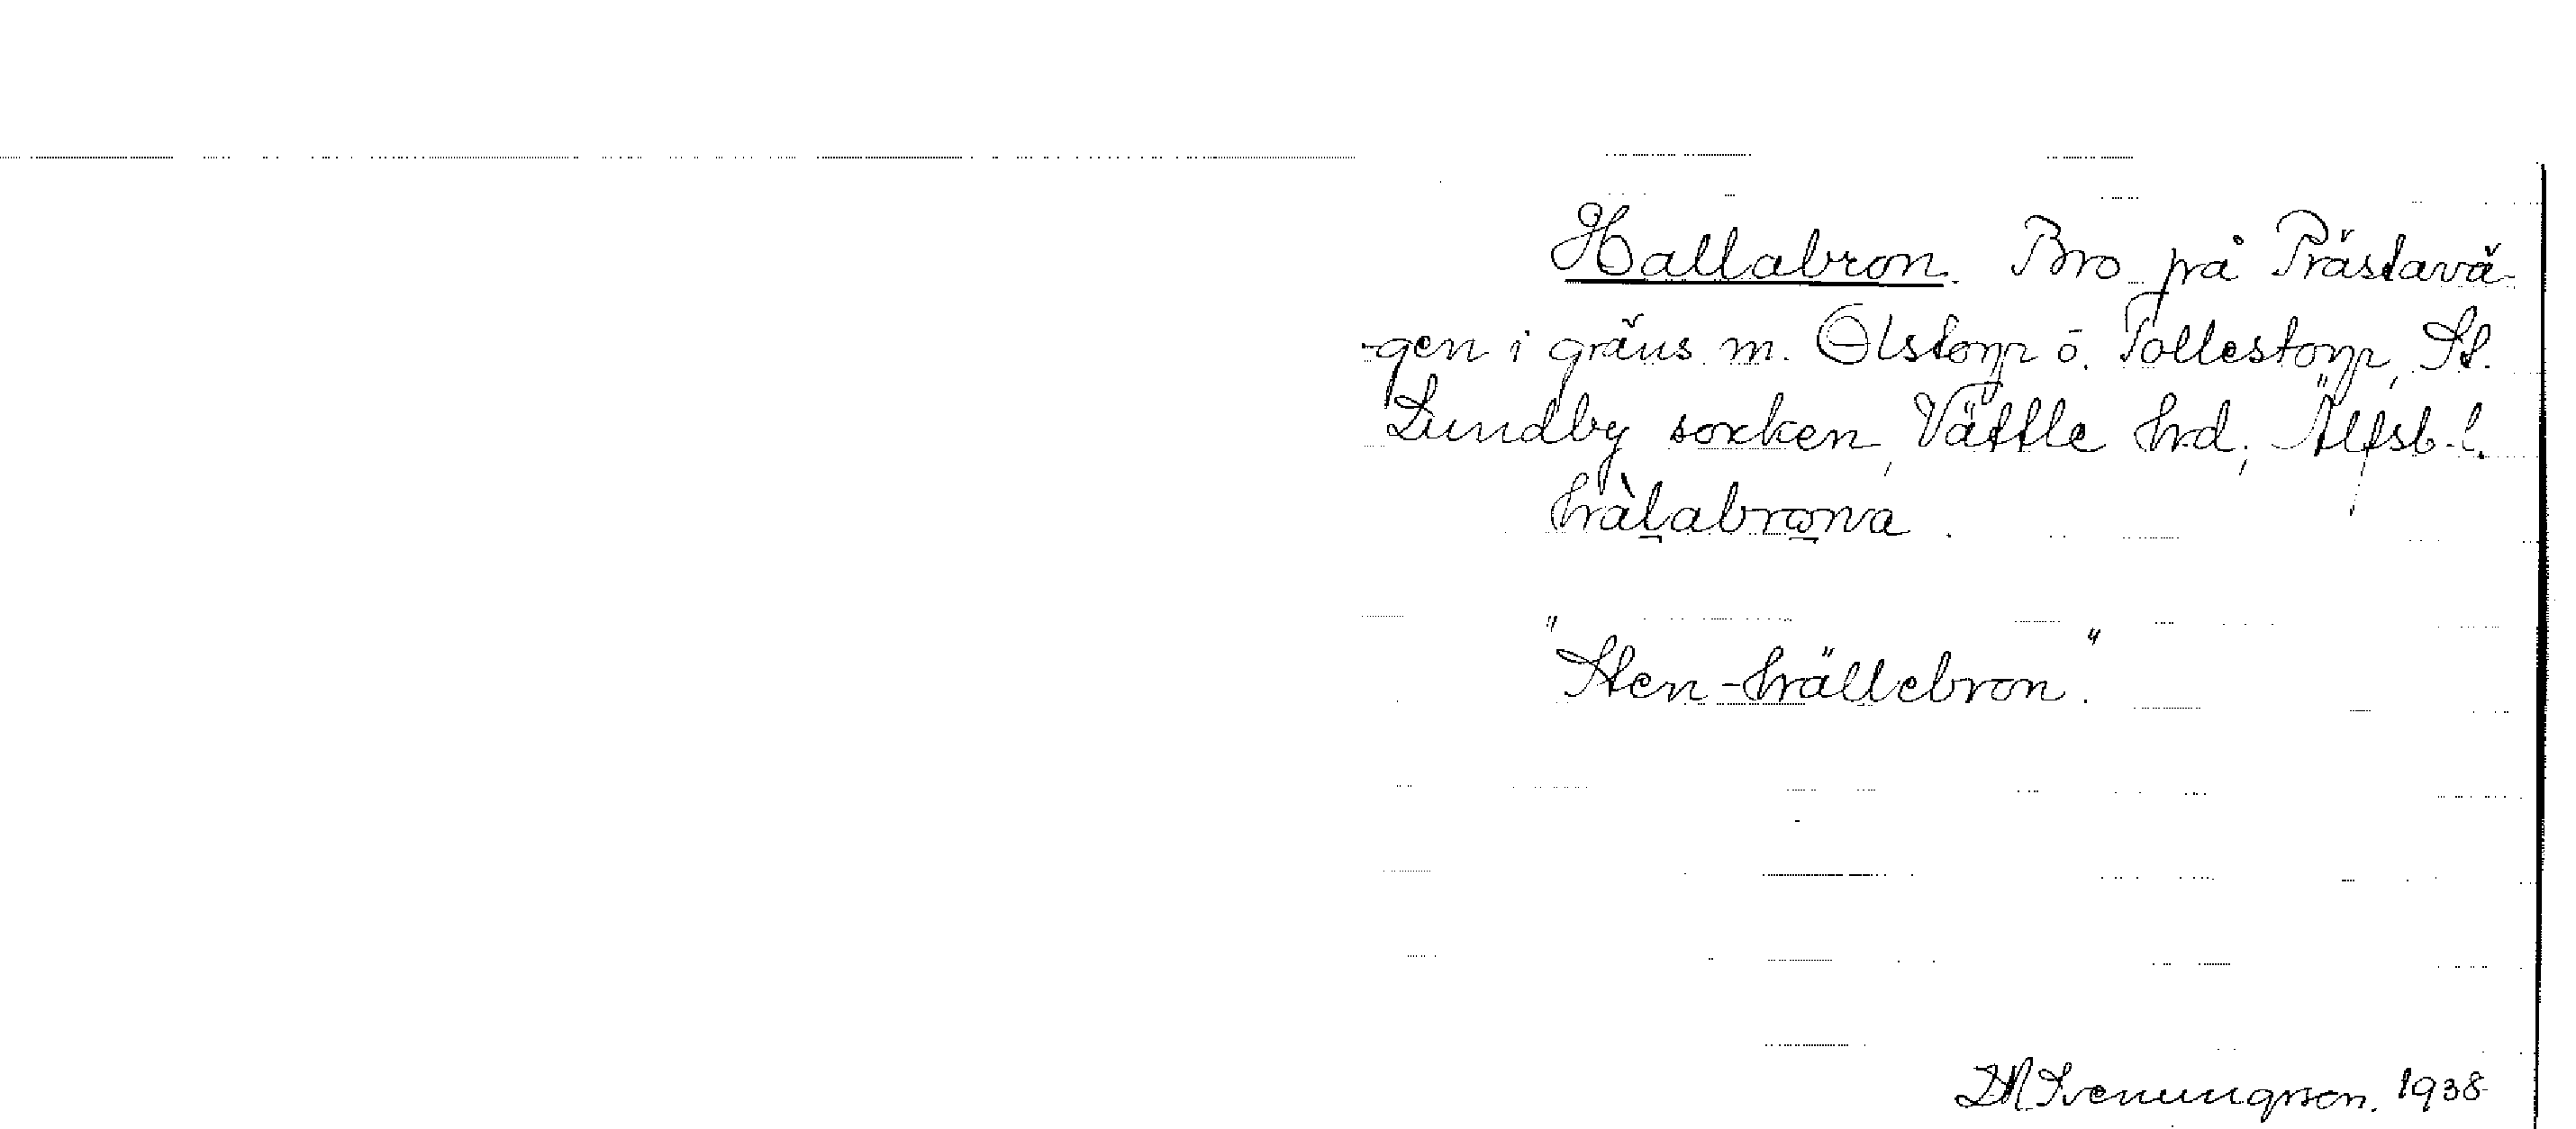 Hallabron. Bro på Prästavä-
-gen i gräns m. Olstorp o. Tollestorp, St.
Lundby socken, Vättle hrd; Älfsb. l.
hàlabrona.
"Sten-hällebron."
Svenungsson. 1938